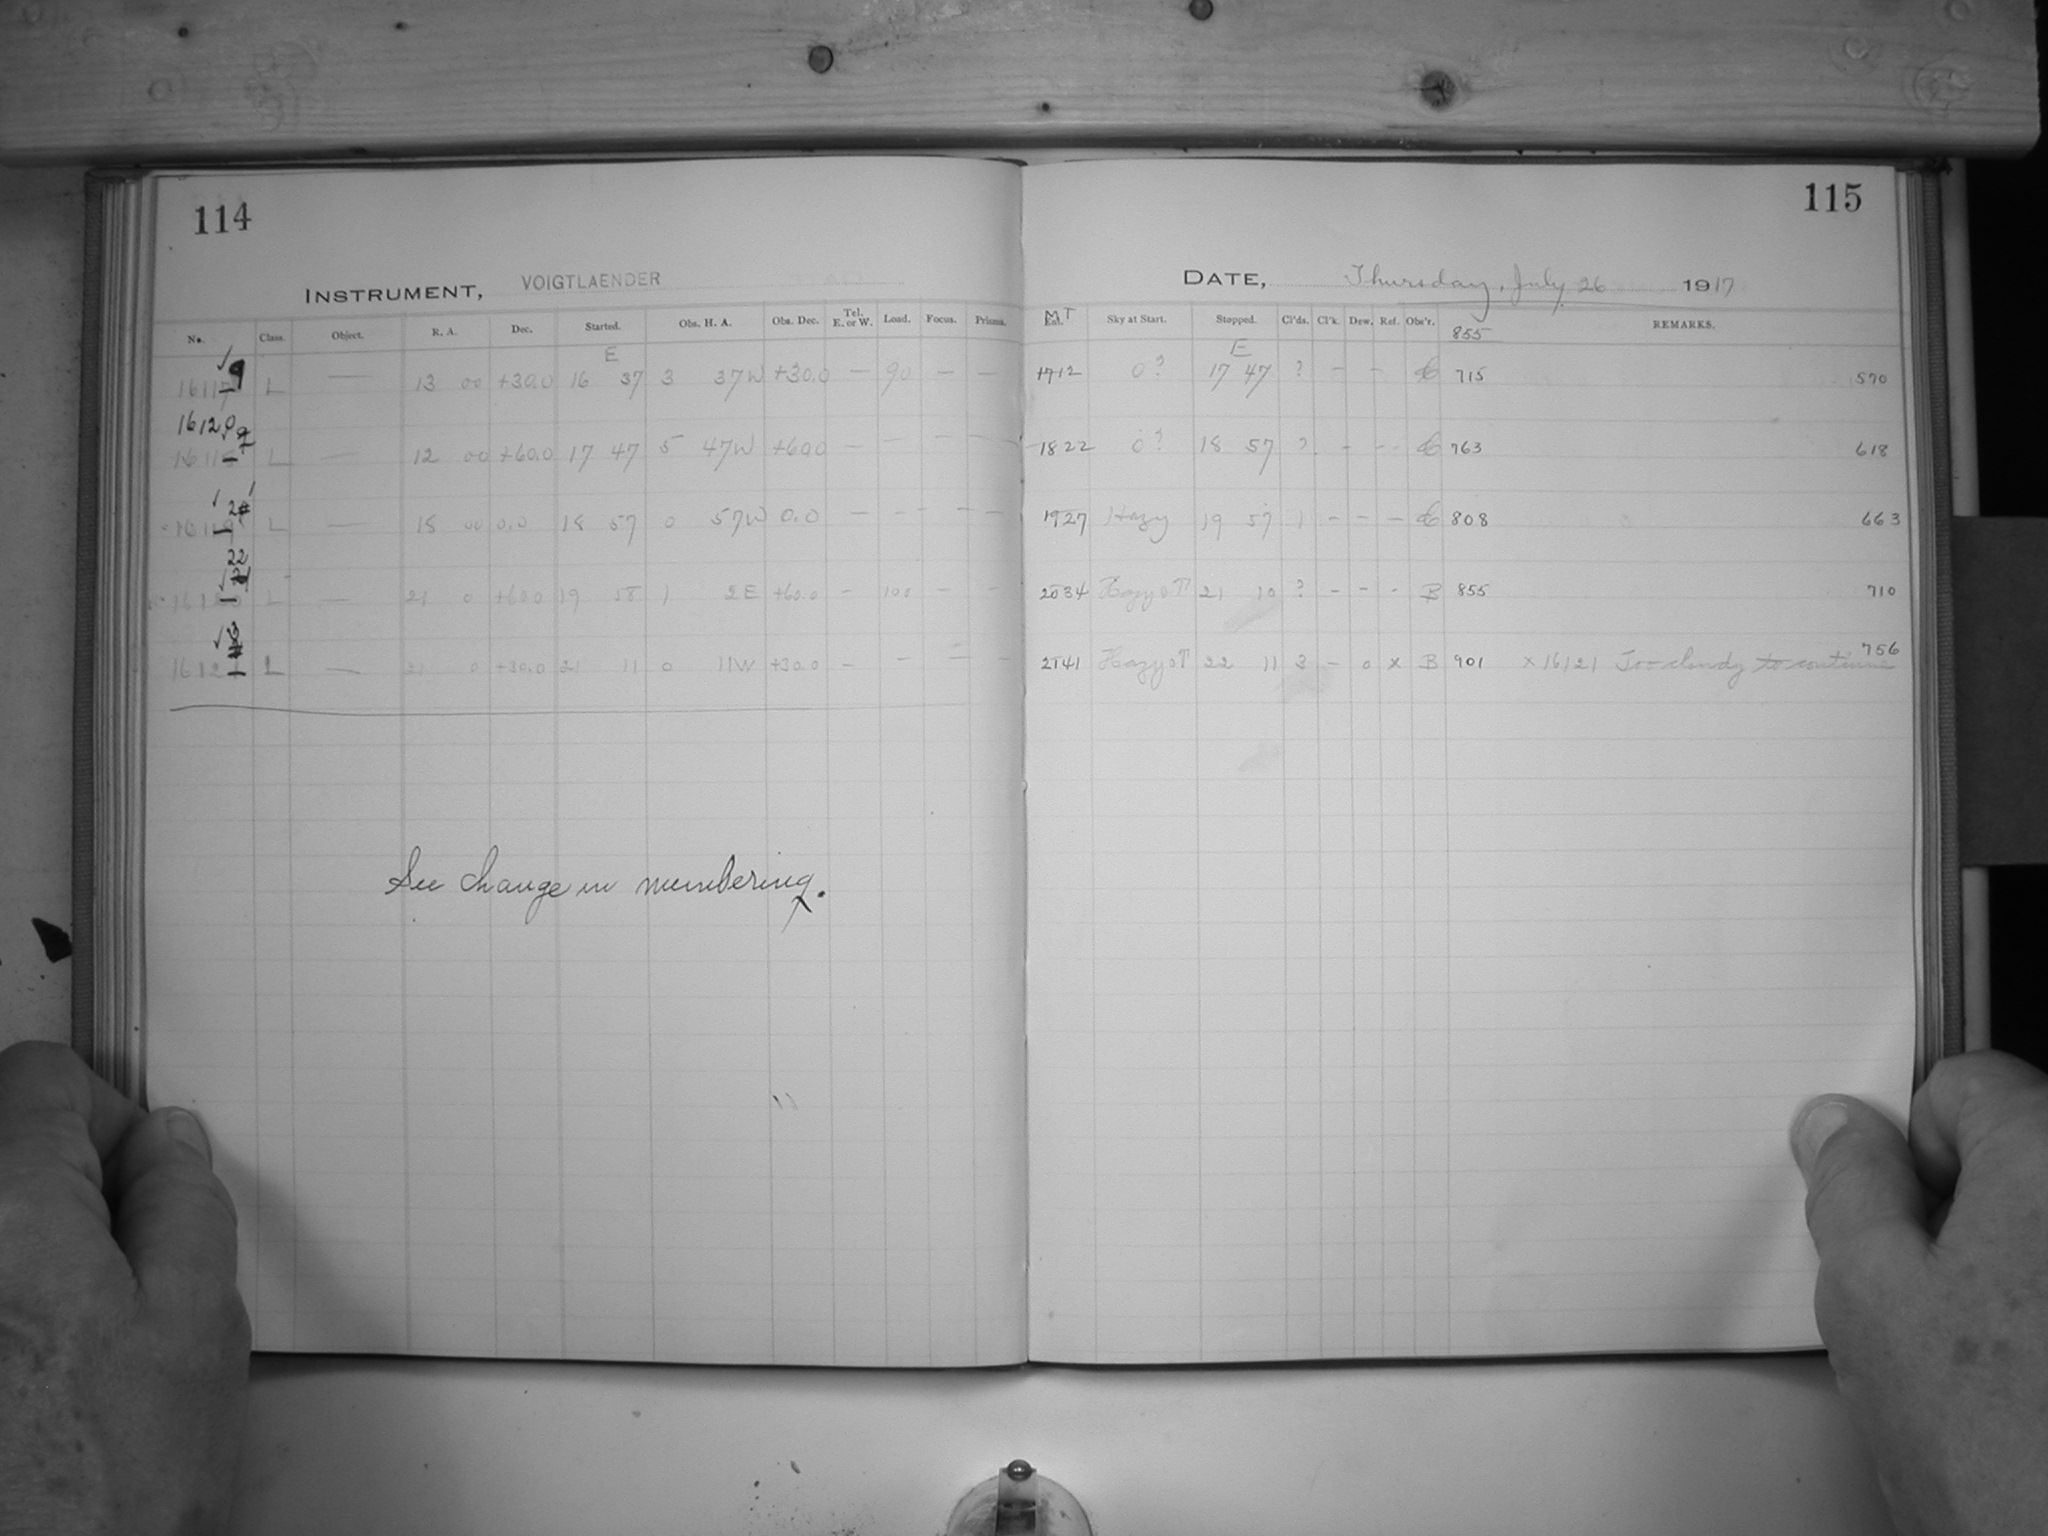 114
INSTRUMENT, VOIGTLAENDER
No. Class. Object. R. A. Dec. Started. Obs. H. A. Obs. Dec. Tel. E. or W. Load. Focus. Prisms.
E
L — 13 00 +30.0 16 37 3 37W +30.0 — 90 — —
16120
L — 12 00 +60.0 17 47 5 47W +60.0 — — — —
L — 18 00 0.0 18 57 0 57W 0.0 — — — —
22
L — 21 0 +60.0 19 58 1 2E +60.0 — 100 — —
L — 21 0 +30.0 21 11 0 11W +30.0 — — — —
See change in numbering.
115
DATE, Thursday, July 26 1917
MT Sky at Start. Stopped. Cl'ds. Cl'k. Dew. Ref. Obs'r. 855 REMARKS.
E
1712 0? 17 47 ? — — 715 570
1822 0? 18 57 ? - - - 763 618
1927 Hazy 19 57 1 — — — 808 663
2034 Hazy 21 10 ? - - - B 855 710
2141 Hazy 22 11 3 - 0 x B 901 x 16121 Too cloudy to continue 756